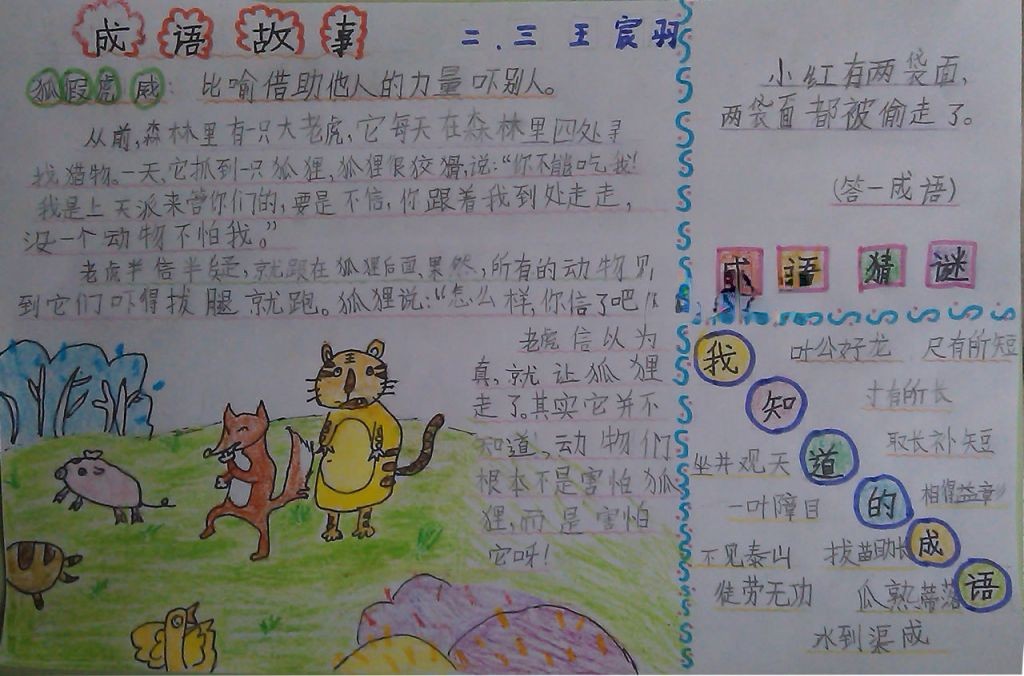 成语故事
二.三 王宸羽
狐假虎威：比喻借助他人的力量吓别人。
从前,森林里有一只大老虎,它每天在森林里四处寻
找猎物。一天,它抓到一只狐狸,狐狸很狡猾,说:“你不能吃我!
我是上天派来管你们的,要是不信,你跟着我到处走走,
没一个动物不怕我。”
老虎半信半疑,就跟在狐狸后面,果然,所有的动物见
到它们吓得拔腿就跑。狐狸说:“怎么样,你信了吧!”
老虎信以为
真,就让狐狸
走了。其实它并不
知道,动物们
根本不是害怕狐
狸,而是害怕
它呀!
小红有两袋面,
两袋面都被偷走了。
(答一成语)
成语猜谜
我知道的成语
叶公好龙 尺有所短
寸有所长
取长补短
坐井观天
相得益章
一叶障目
不见泰山 拔苗助长
徒劳无功 瓜熟蒂落
水到渠成